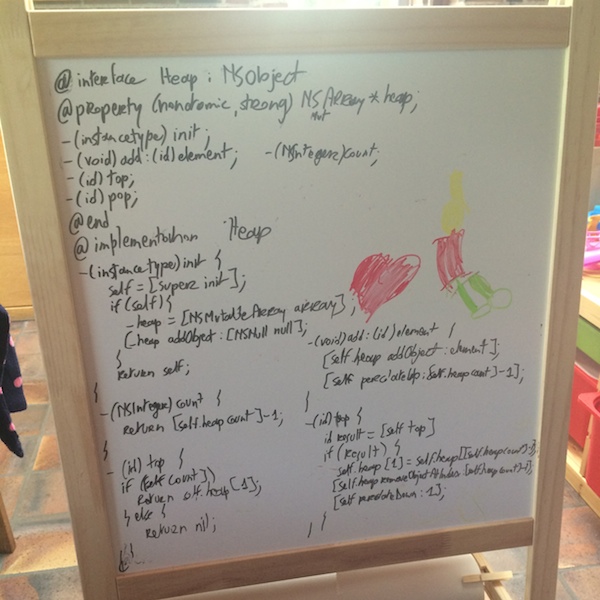 @interface Heap : NSObject
@property (nonatomic, strong) NSMutArray * heap;
-(instancetype) init;
-(void) add:(id) element; -(NSInteger) count;
-(id) top;
-(id) pop;
@end
@implementation Heap
-(instancetype) init {
self = [super init];
if (self) {
_heap = [NSMutableArray array];
[_heap addObject: [NSNull null];
}
return self;
}
-(NSInteger) count {
return [self.heap count]-1;
}
-(id) top {
if (self count])
return self.heap[1];
} else {
return nil;
}
-(void) add: (id) element {
[self.heap addObject: element];
[self percolateUp: [self.heap count]-1];
}
-(id) pop {
id result = [self top]
if (result) {
self.heap [1] = self.heap[[self.heap count]-1];
[self.heap removeObjectAtIndex: [self.heap count]-1];
[self percolateDown: 1];
} }